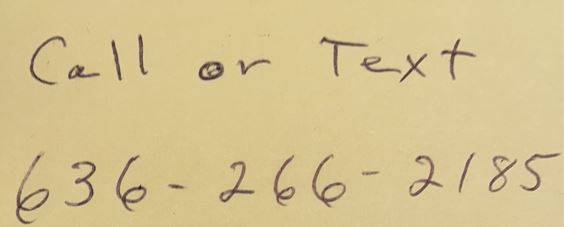 Call or Text
636-266-2185